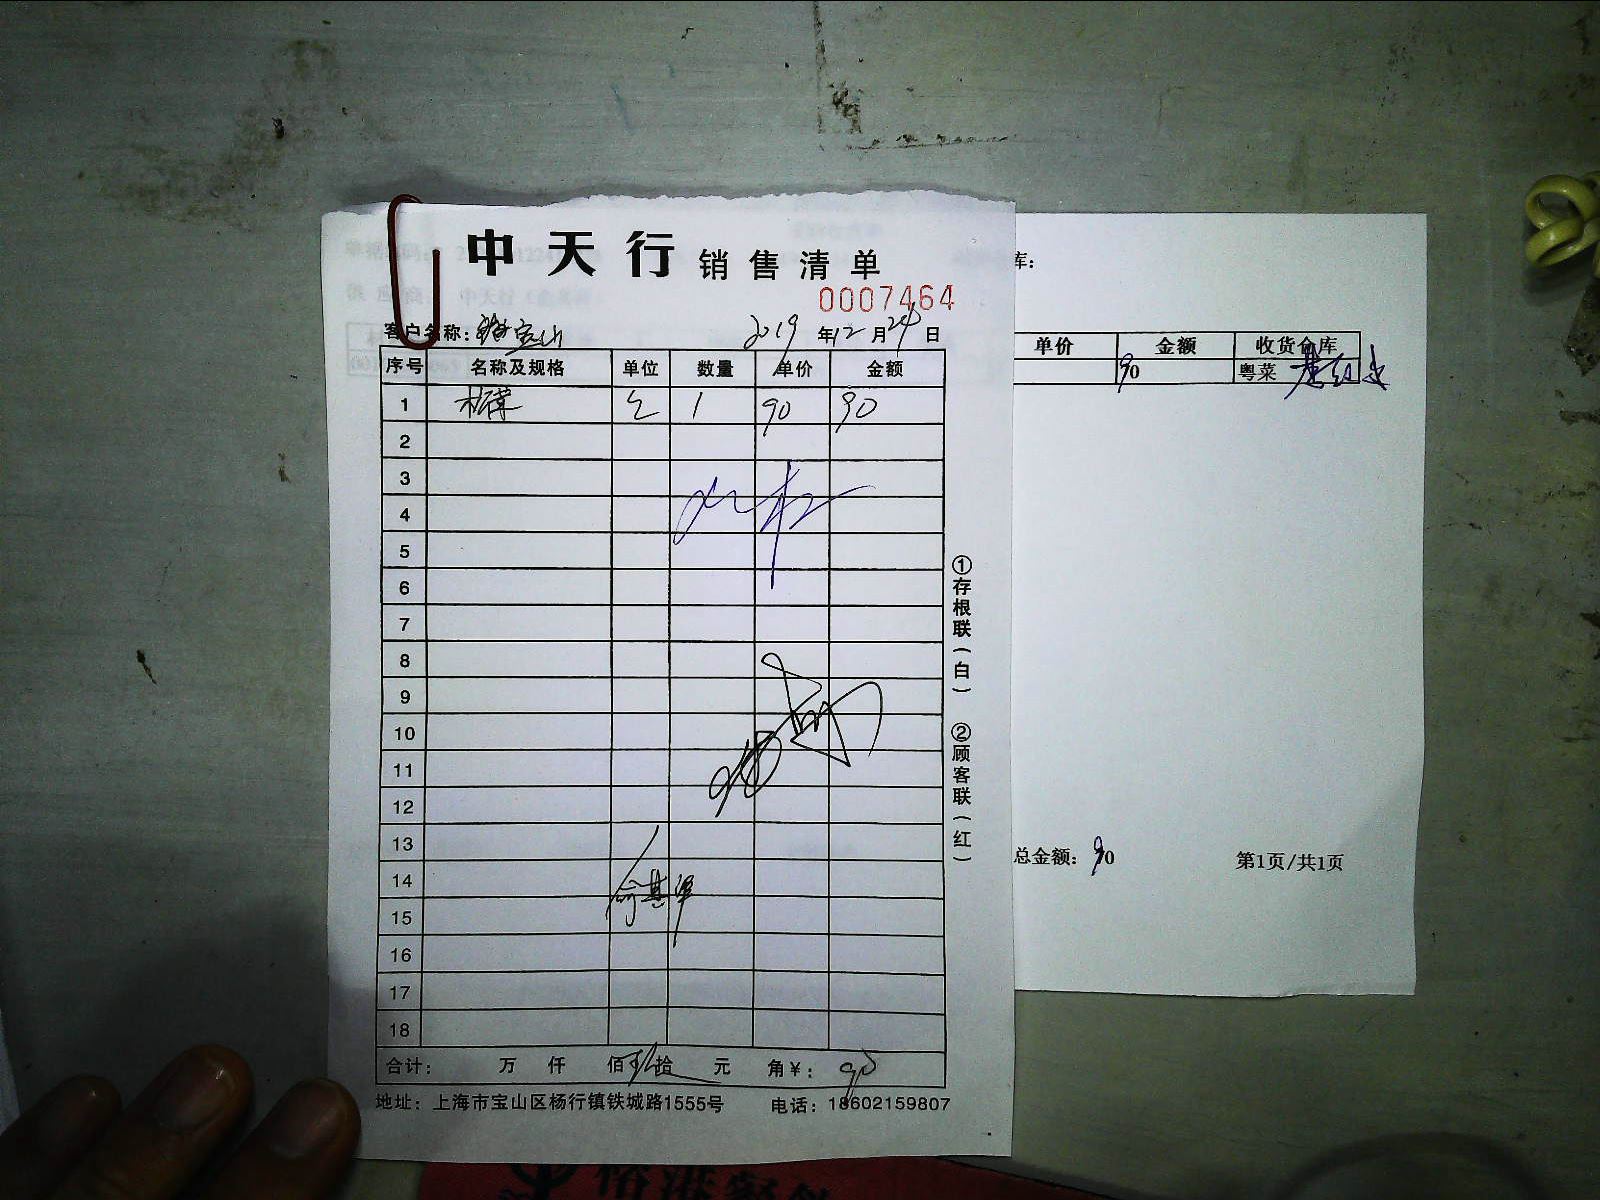 中天行 销售清单
0007464
客户名称: 宝山 2019 年 12 月 24 日
序号 名称及规格 单位 数量 单价 金额
1 1 90 90
2
3
4
5
6
7
8
9
10
11
12
13
14
15
16
17
18
合计: 万 仟 佰 拾 元 角 ¥: 90
地址: 上海市宝山区杨行镇铁城路1555号 电话: 18602159807
①存根联(白) ②顾客联(红)
库:
单价 金额 收货仓库
90 粤菜
总金额: 90 第1页/共1页